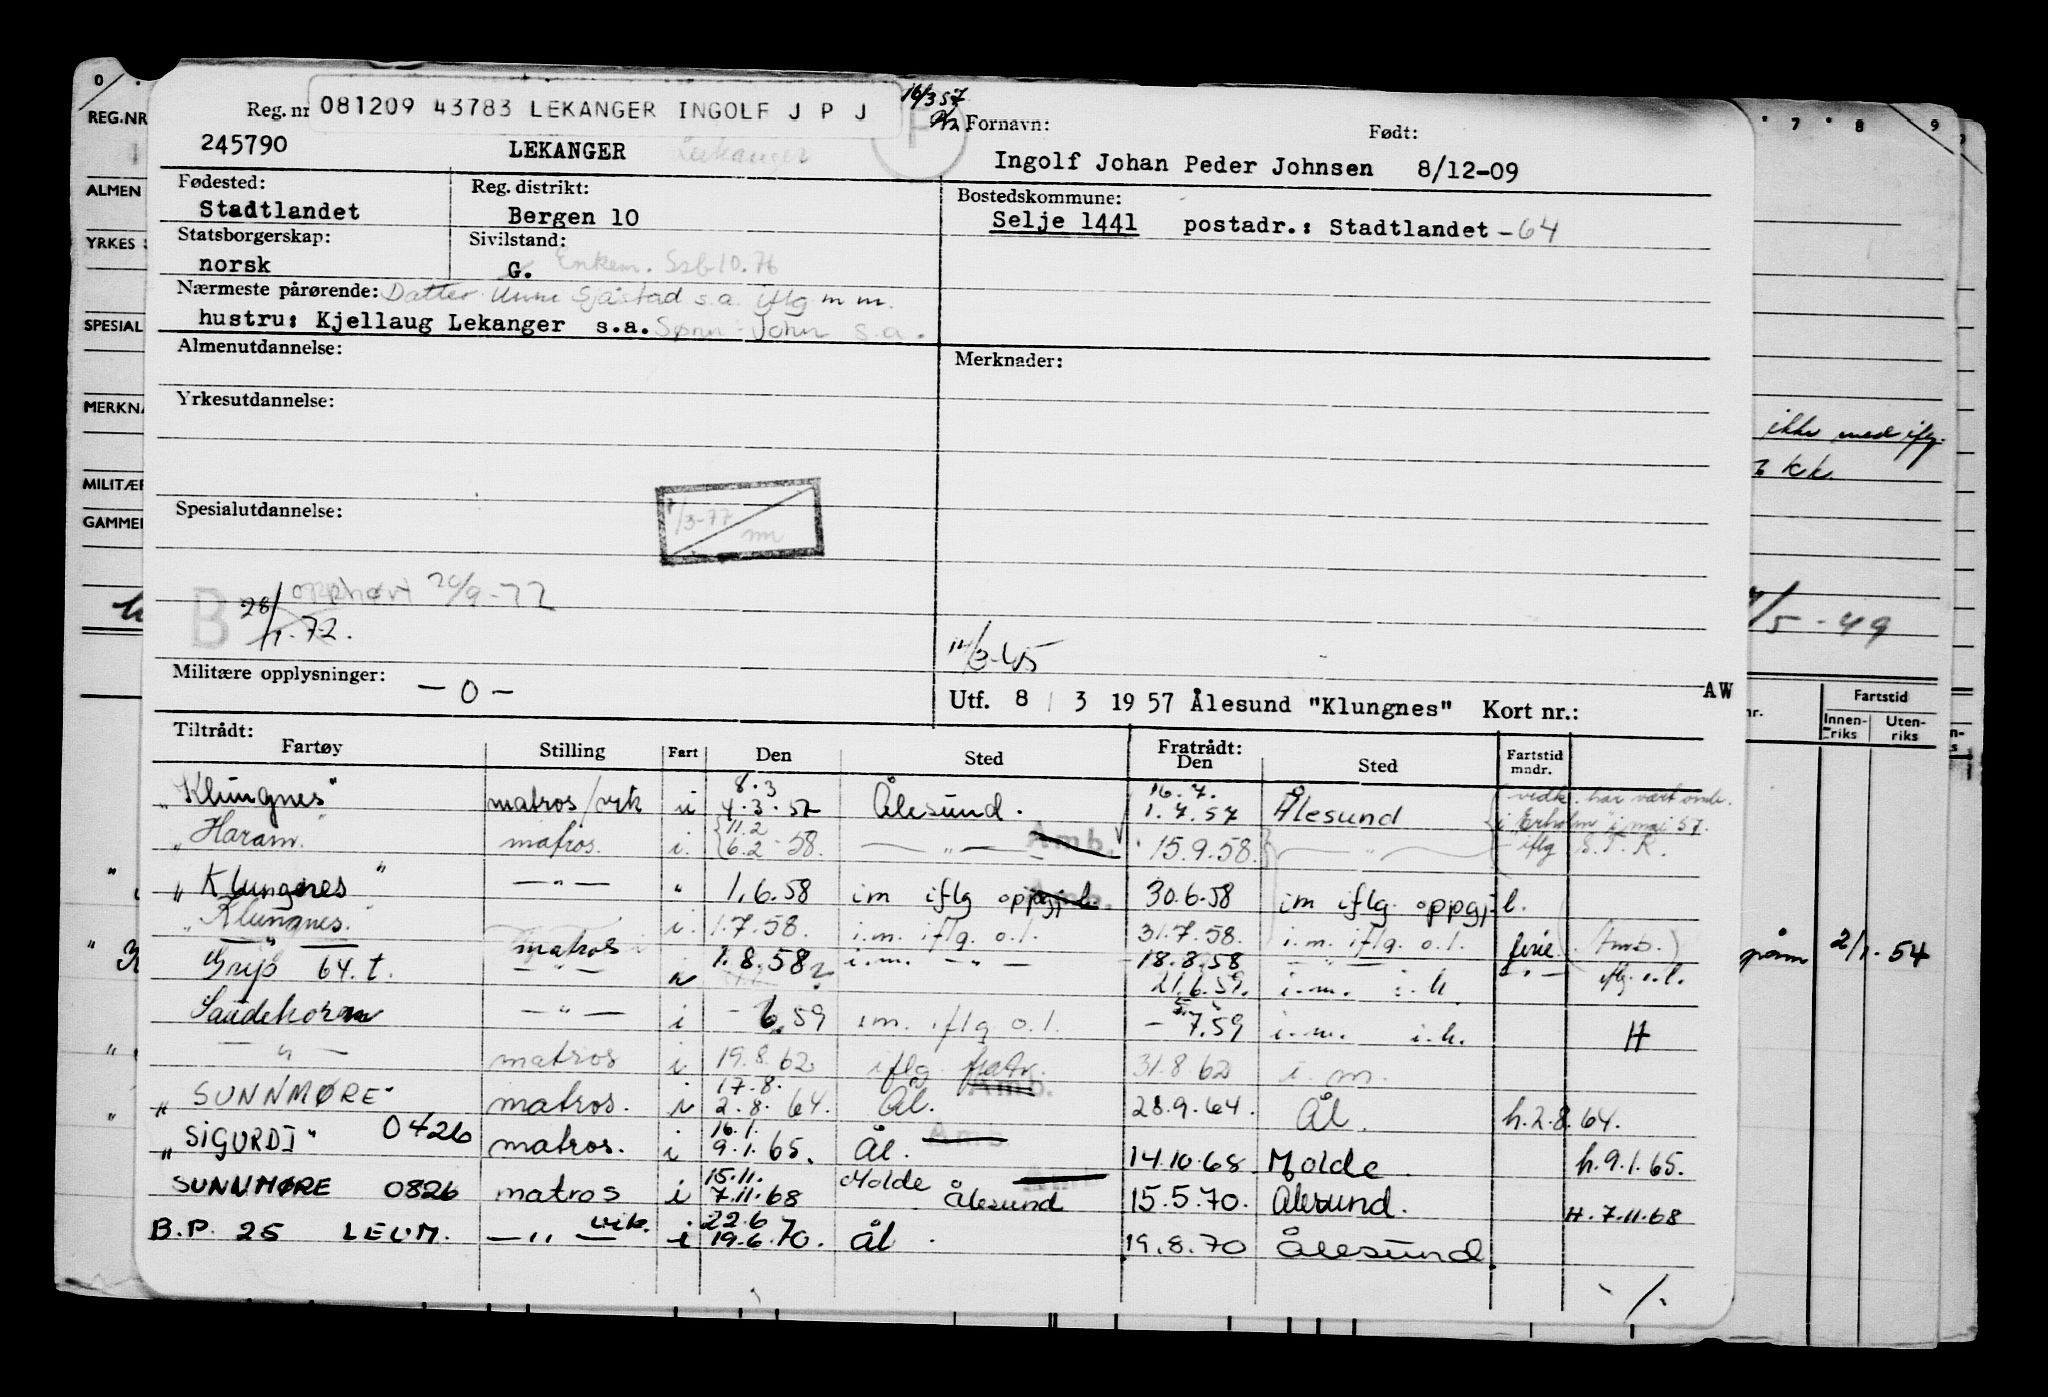 Reg. nr 081209 43783 LEKANGER INGOLF J P J
16/3 57
Fornavn: Født:
245790 LEKANGER Lekanger F Ingolf Johan Peder Johnsen 8/12-09
Fødested: Reg. distrikt: Bostedskommune:
Stadtlandet Bergen 10 Selje 1441 postadr.: Stadtlandet -64
Statsborgerskap: Sivilstand:
norsk G. Enkem. Ssb 10.76
Nærmeste pårørende: Datter Unni Sjåstad s.a. iflg m m.
hustru: Kjellaug Lekanger s.a. Sønn: John s.a.
Almenutdannelse: Merknader:
Yrkesutdannelse:
Spesialutdannelse:
/3-77
mm
B 28/1.72. opphørt 26/9-72
Militære opplysninger: -0-
Utf. 8 / 3 19 57 Ålesund "Klungnes" Kort nr.: AW
Tiltrådt: Fratrådt:
Fartøy Stilling Fart Den Sted Den Sted Fartstid mndr.
"Klungnes" matros/vik i 8.3 4.3.57 Ålesund. 16.7. 1.7.57 Ålesund vedk. har vært omb. i Erholm i mai 57. iflg S.F.K.
"Haram" matros. i. 11.2 6.2-58. — " — Amb. 15.9.58. — " —
"Klungnes" — " — " 1.6.58 im iflg oppgj.l. 30.6.58 im iflg. oppgj.l.
"Klungnes" i. 1.7.58. i.m. iflg. o.l. 31.7.58. i.m. iflg. o.l. ferie (Amb.)
Gryp 64.t. matros 1.8.58 i.m. — " — 18.8.58 — " — iflg. o.l.
— " — 21.6.59. i.m. i.h.
Saudehorn — " — i -6.59 i.m. iflg o.l. 5. -7.59 i.m. i.h. H
— " — matros i 19.8.62 iflg. fratr. 31.8.62 i.m.
"SUNNMØRE" matros. i 17.8. 2.8.64. Ål. Amb. 28.9.64. Ål. h.2.8.64.
"SIGURD I" 0426 matros. i 16.1. 9.1.65. Ål. Amb 14.10.68 Molde h.9.1.65.
SUNNMØRE 0826 matros i 15.11. 7.11.68 Molde Ålesund 15.5.70. Ålesund. H.7.11.68
B.P. 25 LEUM. — " — vik. i 22.6 19.6.70. Ål. 19.8.70 Ålesund.
./.
REG.NR
ALMEN
YRKES
SPESIAL
MERKNA
MILITÆR
GAMMEL
0
7 8 9
ikke med iflg.
kk.
/5-49
nr. Fartstid
Innen-riks Uten-riks
2/1.54